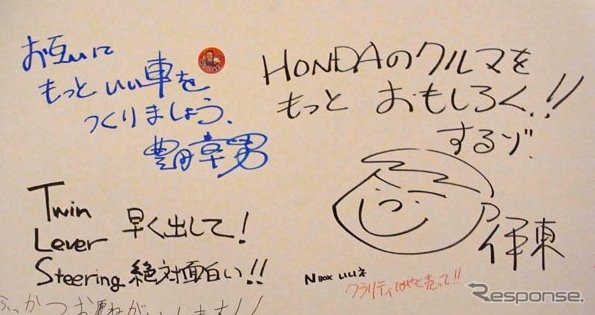 お互いに
もっといい車を
つくりましょう.
豊田章男
HONDAのクルマを
もっと おもしろく!!
するゾ.
伊東
Twin
Lever 早く出して!
Steering 絶対面白い!!
N BOX いいネ
クラリティはやく売って!!
ふっかつお願がいします!!
Response.